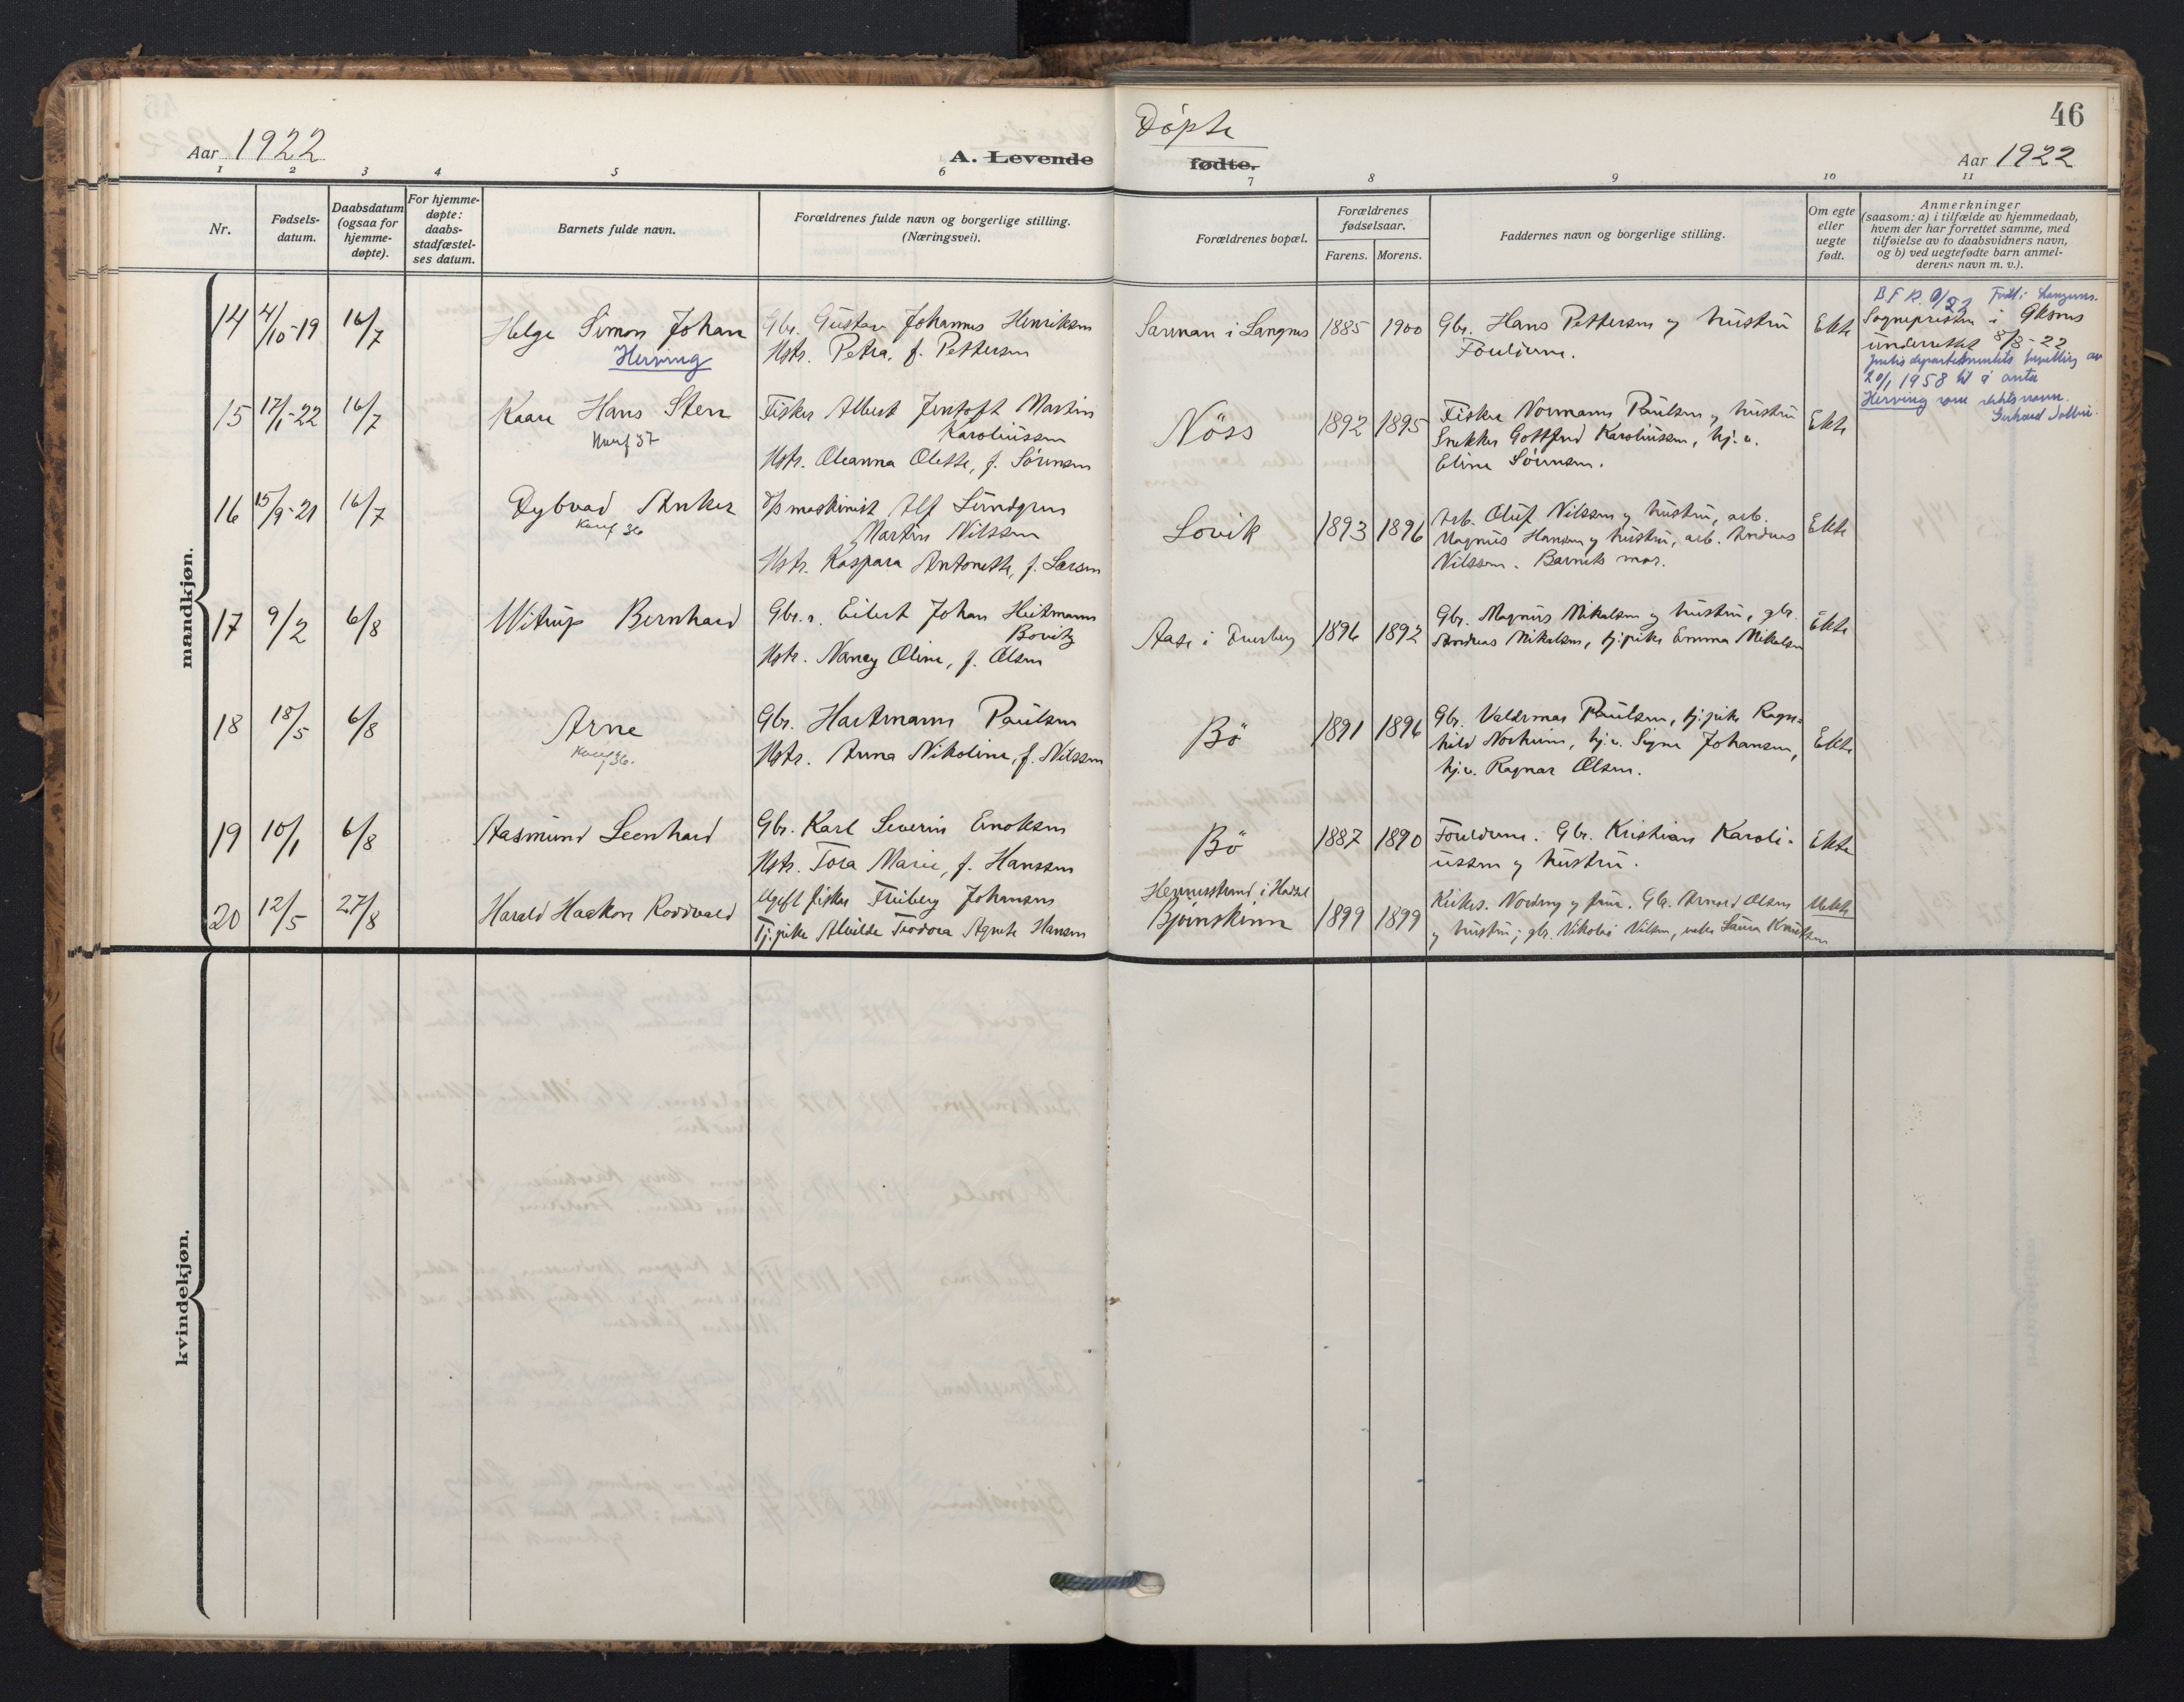 46
Aar 1922
A. Levende
Døpte
fødte.
Aar 1922
1 2 3 4 5 6 7 8 9 10 11
Nr.
Fødsels-
datum.
Daabsdatum
(ogsaa for
hjemme-
døpte).
For hjemme-
døpte:
daabs-
stadfæstel-
ses datum.
Barnets fulde navn.
Forældrenes fulde navn og borgerlige stilling.
(Næringsvei).
Forældrenes bopæl.
Forældrenes
fødselsaar.
Farens. Morens.
Faddernes navn og borgerlige stilling.
Om egte
eller
uegte
født.
Anmerkninger
(saasom: a) i tilfælde av hjemmedaab,
hvem der har forrettet samme, med
tilføielse av to daabsvidners navn,
og b) ved uegtefødte barn anmel-
derens navn m. v.).
mandkjøn.
14 4/10-19 16/7
Helge Simon Johan
Herving
Gbr. Gustav Johannes Henriksen
Hstr. Petra, f. Pettersen
Sarman i Langnes
1885 1900
Gbr. Hans Pettersen og hustru
Foreldrene.
Ekte
Sognepresten i Øksnes
underrettet 8/8-22
Justisdepartementets bevilling av
20/1 1958 til å anta
Herving som slektsnavn.
15 17/1-22 16/7
Kaare Hans Sten
Konf 37
Fisker Albert Jentoft Martin
Karoliussen
Hstr. Oleanna Olette, f. Sørensen
Nöss
1892 1895
Fisker Normann Paulsen og hustru
Snekker Gottfred Karoliussen, hj. v.
Eline Sørensen.
Ekte
16 15/9-21 16/7
Dybvad Anker
Konf 36
D/s maskinist Alf Lundgren
Martin Nilssen
Hstr. Kaspara Antonette, f. Larsen
Lovik
1893 1896
Arb. Oluf Nilssen og hustru, arb.
Magnus Hansen og hustru, arb. Andreas
Nilssen. Barnets mor.
Ekte
17 9/2 6/8
Witrup Bernhard
Gbr. s. Eilert Johan Heitmann
Bovitz
Hstr. Nancy Oline, f. Olsen
Aase i Dverberg
1896 1892
Gbr. Magnus Mikalsen og hustru, gbr.
Andreas Mikalsen, tj.pike Emma Mikalsen
Ekte
18 18/5 6/8
Arne
Konf 36.
Gbr. Hartmann Paulsen
Hstr. Anna Nikoline, f. Nilssen
Bö
1891 1896
Gbr. Valdemar Paulsen, tj.pike Ragn-
hild Norheim, hj.v. Signe Johansen,
hj.v. Ragnar Olsen.
Ekte
19 10/1 6/8
Aasmund Leonhard
Gbr. Karl Severin Enoksen
Hstr. Tora Marie, f. Hanssen
Bö
1887 1890
Foreldrene. Gbr. Kristian Karoli-
ussen og hustru.
Ekte
20 12/5 27/8
Harald Haakon Roddvald
Ugift fisker Friberg Johansen
Tj.pike Alvilde Teodora Agnete Hansen
Hennesstrand i Hadsel
Bjørnskinn
1899 1899
Kirkes. Nordeng og frue. Gbr. Arnold Olsen
og hustru; gbr. Nikolai Nilsen, Laura Knutsen
Uekte
kvindekjøn.